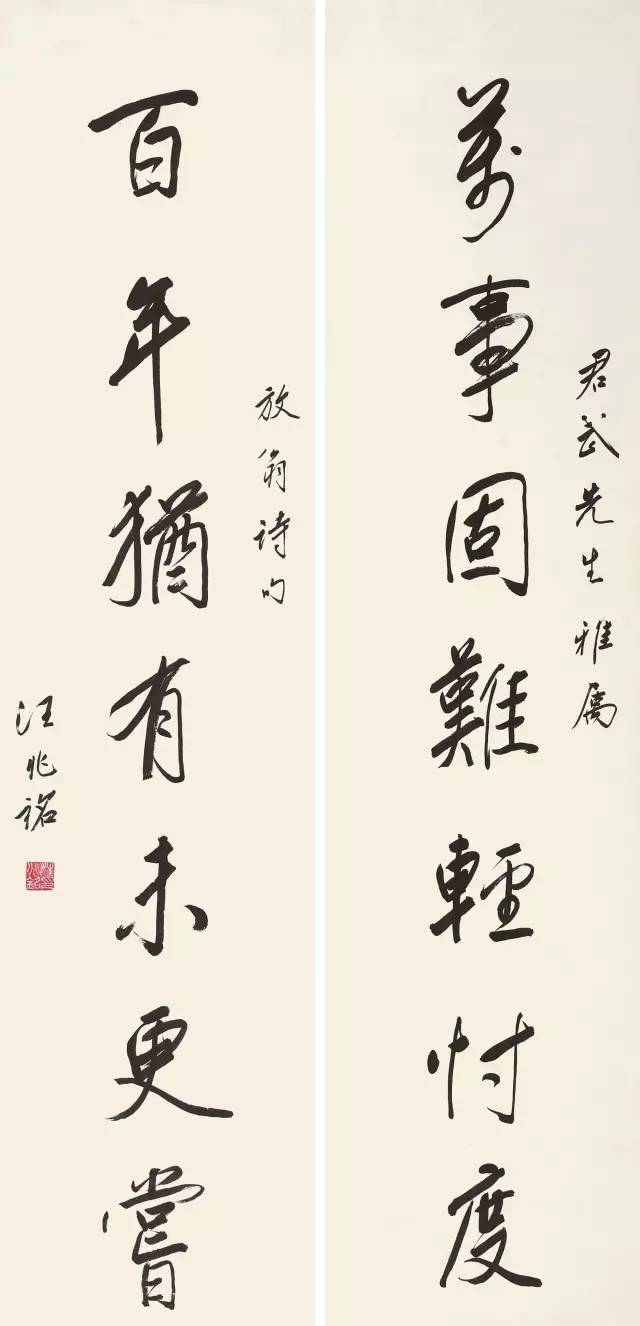 萬事固難輕忖度
君武先生雅属
百年猶有未更嘗
放翁詩句
汪兆銘